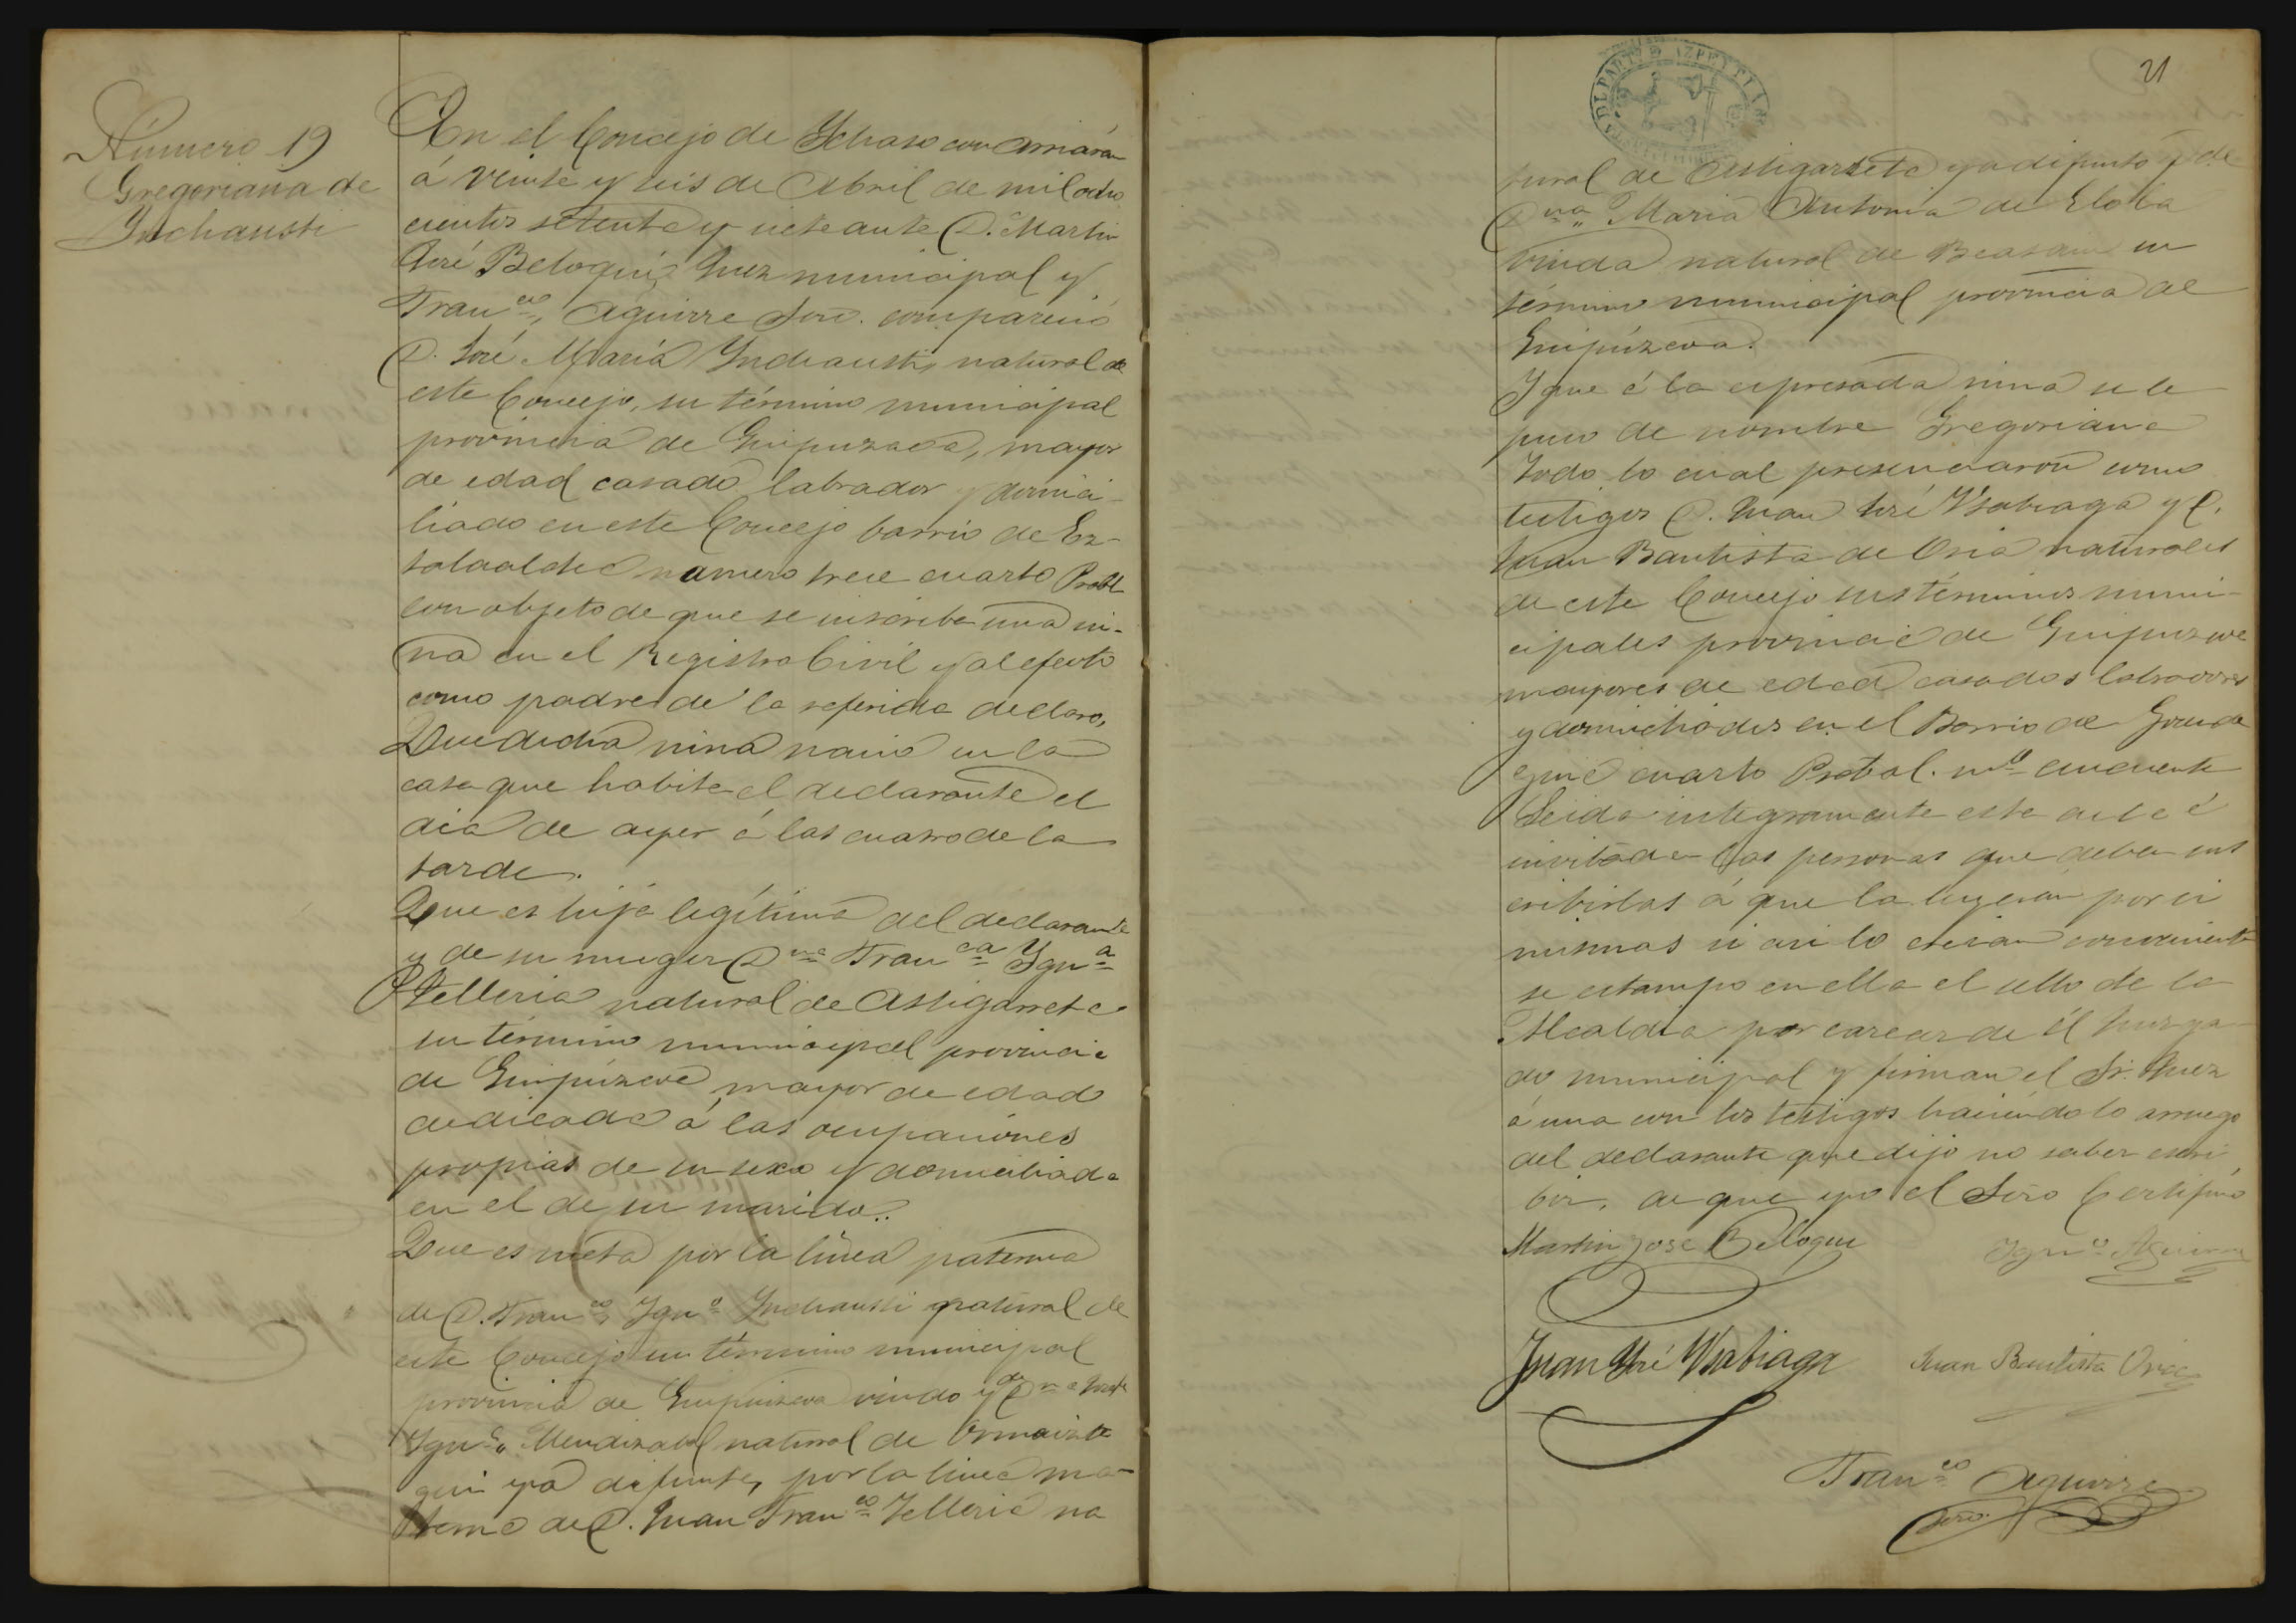 Número 19
Gregoriana de
Ynchausti
En el Concejo de Ychaso con Arriarán
á veinte y seis de Abril de mil ocho
cientos setenta y siete ante D. Martin
José Beloqui, Juez municipal y
Franco, Aguirre Srio. compareció
D. José María Ynchausti, natural de
este Concejo, su término municipal
provincia de Guipuzcoa, mayor
de edad casado labrador y domici-
liado en este Concejo barrio de
número trece cuarto Pral
con objeto de que se inscriba una ni-
ña en el Registro Civil y al efecto
como padre de la referida declaró,
Que dicha niña nació en la
casa que habita el declarante el
dia de ayer á las cuatro de la
tarde.
Que es hija legítima del declarante
y de su muger Dña Franca Ygna
Telleria natural de Astigarreta
su término municipal provincia
de Guipúzcoa mayor de edad
dedicada á las ocupaciones
propias de su sexo y domiciliada
en el de su marido..
Que es nieta por la línea paterna
de D. Franco, Ygno Ynchausti natural de
este Concejo su término municipal
provincia de Guipúzcoa viudo y de Dña Josefa
Ygna, Mendizabal natural de Ormaizte
gui ya difunta, por la linea ma-
terna de D. Juan Franco Telleria na
21
DEL PARTI D. AZPEYTIA
tural de Astigarreta ya difunto y de
Dna,, Maria Antonia de Elola
viuda natural de Beasain su
término municipal provincia de
Guipúzcoa.
Y que á la expresada niña se le
puso de nombre Gregoriana
Todo lo cual presenciaron como
testigos D. Juan José Ysabiaga y D.
Juan Bautista de Oria naturales
de este Concejo sus términos muni-
cipales provincia de Guipuzcoa
mayores de edad casados labradores
y domiciliados en el Barrio de
cuarto Prebal. no cincuenta
Leida integramente esta acta é
invitadas las personas que deben sus
cribirlas á que la leyeran por si
mismas si asi lo creian conveniente
se estampó en ella el sello de la
Alcaldia por carecer de él Juzga
do municipal y firman el Sr. Juez
á una con los testigos haciéndolo arruego
del declarante que dijo no saber escri
bir, de que yo el Srio Certifico
Martin Jose Beloqui
Ygno Aguirre
Juan José Ysabiaga
Juan Bautista Oria
Franco Aguirre
Srio.